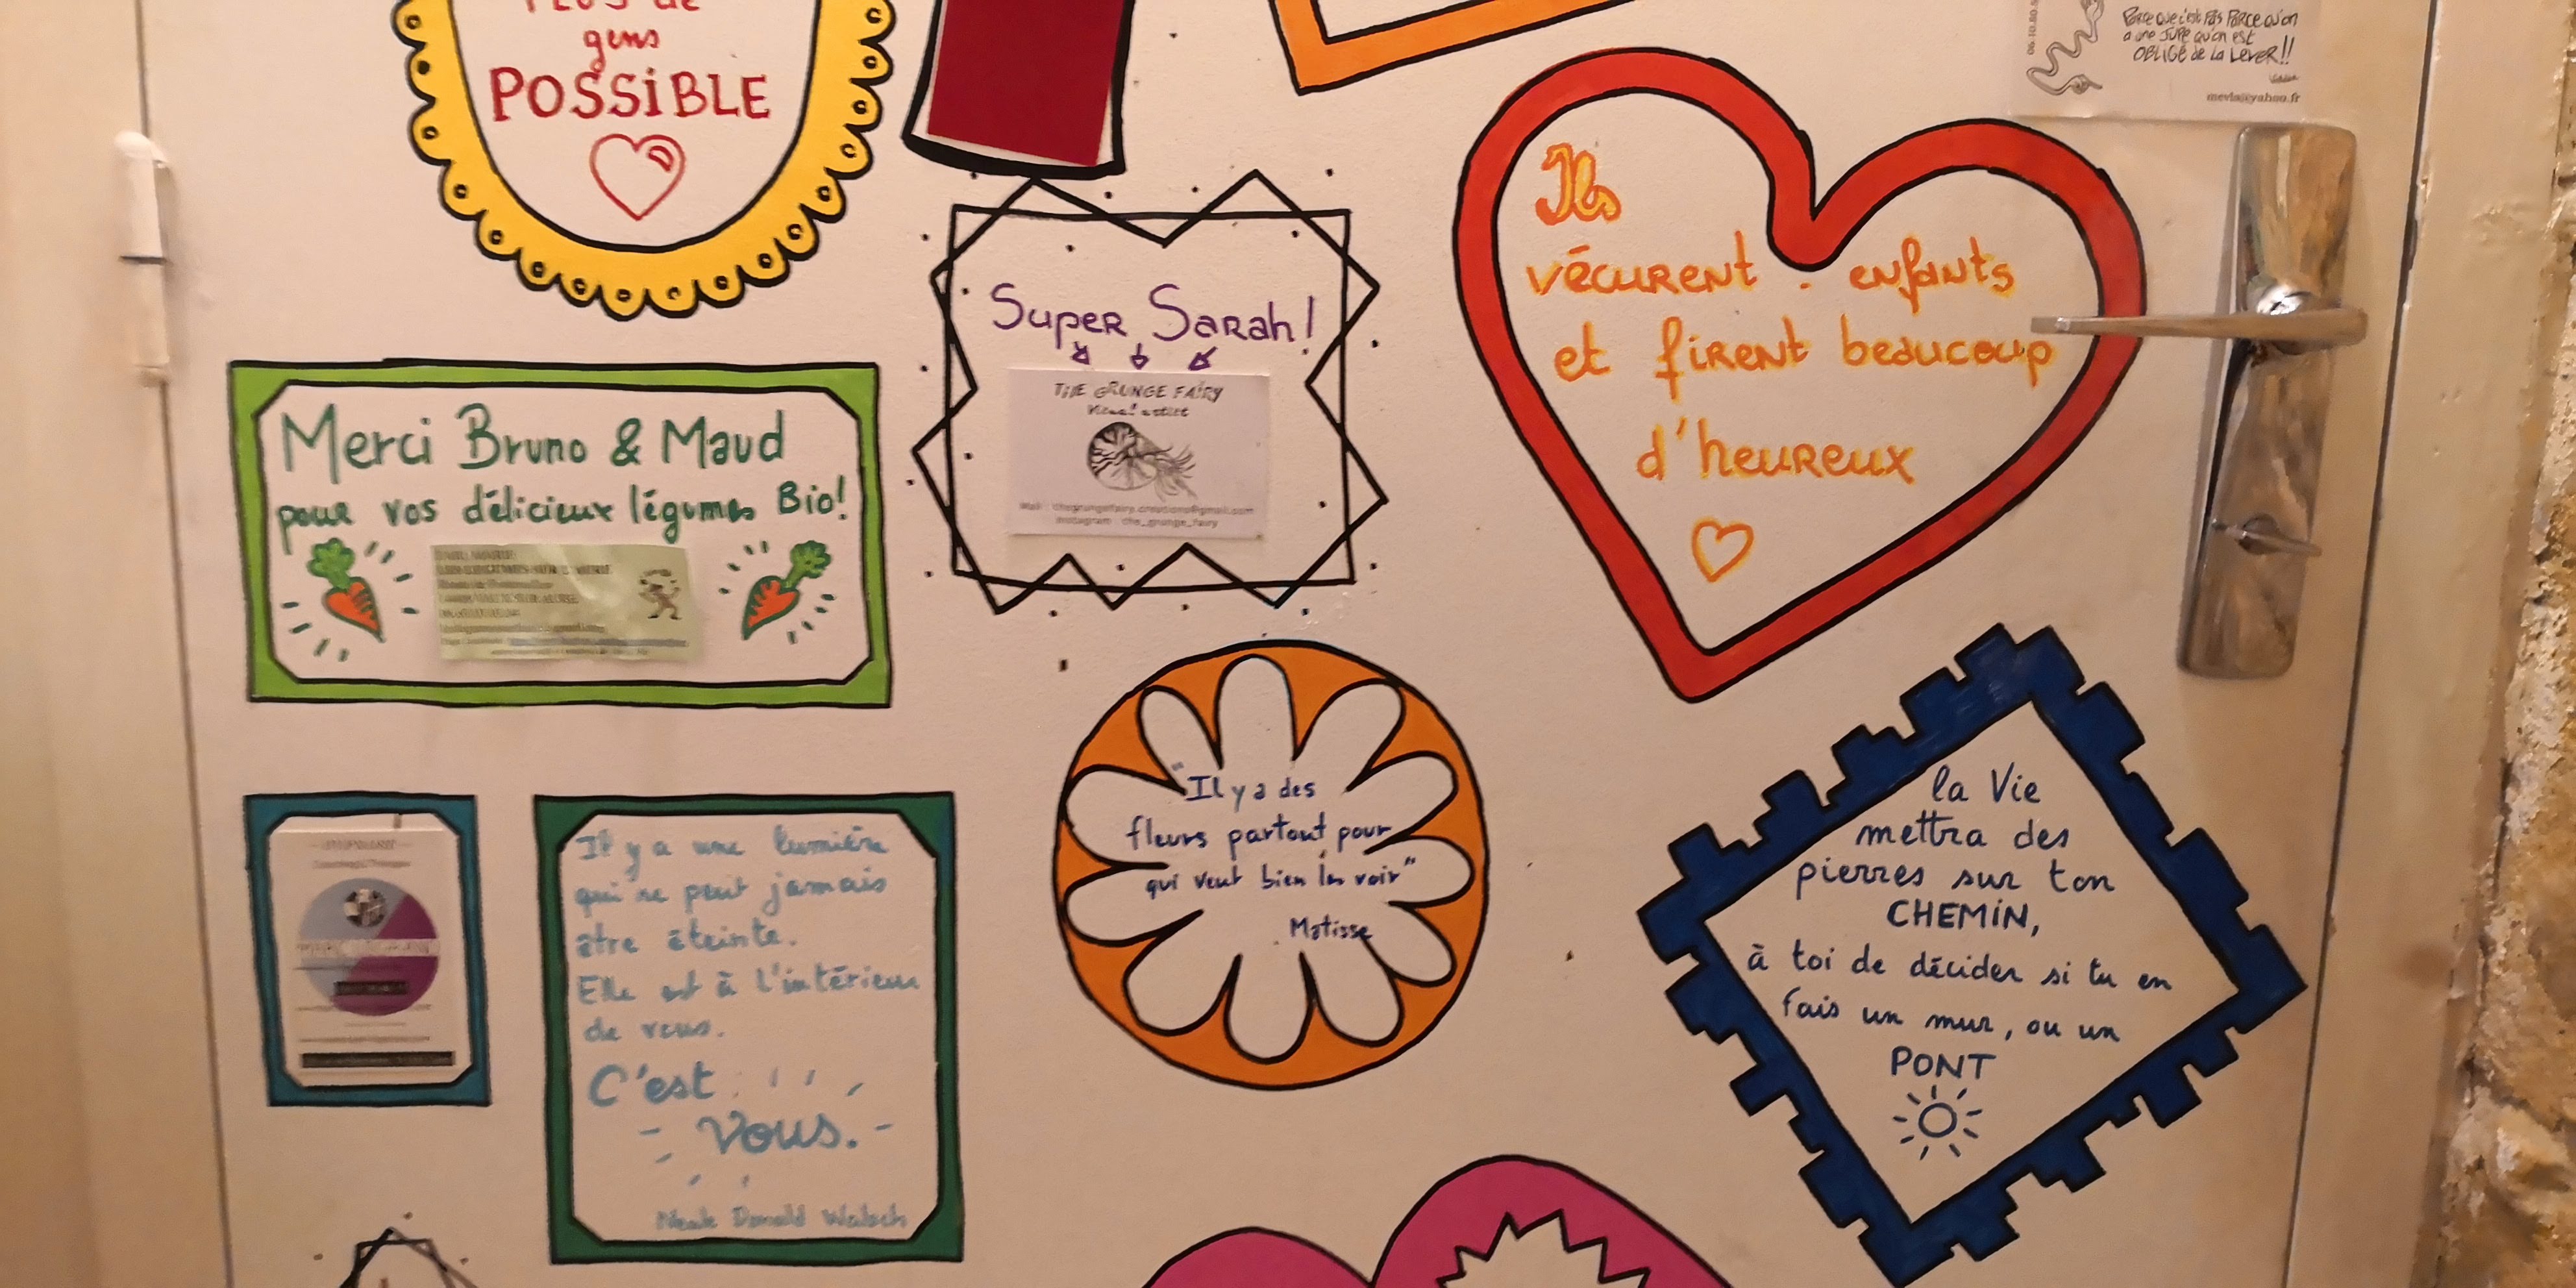 PLUS de
gens
POSSiBLE
Parce que c'est pas parce qu'on
a une jupe qu'on est
OBLIGÉ de La Lever!!
mevla@yahoo.fr
Ils
vécurent . enfants
et firent beaucoup
d'heureux
Super Sarah!
THE GRUNGE FAIRY
Visual artist
Mail : thegrungefairy.creations@gmail.com
Instagram : the_grunge_fairy
Merci Bruno & Maud
pour vos délicieux légumes Bio!
"Il y a des
fleurs partout pour
qui veut bien les voir"
Matisse
la Vie
mettra des
pierres sur ton
CHEMiN,
à toi de décider si tu en
fais un mur, ou un
PONT
Il y a une lumière
qui ne peut jamais
être éteinte.
Elle est à l'intérieur
de vous.
C'est
Vous.
Neale Donald Walsch